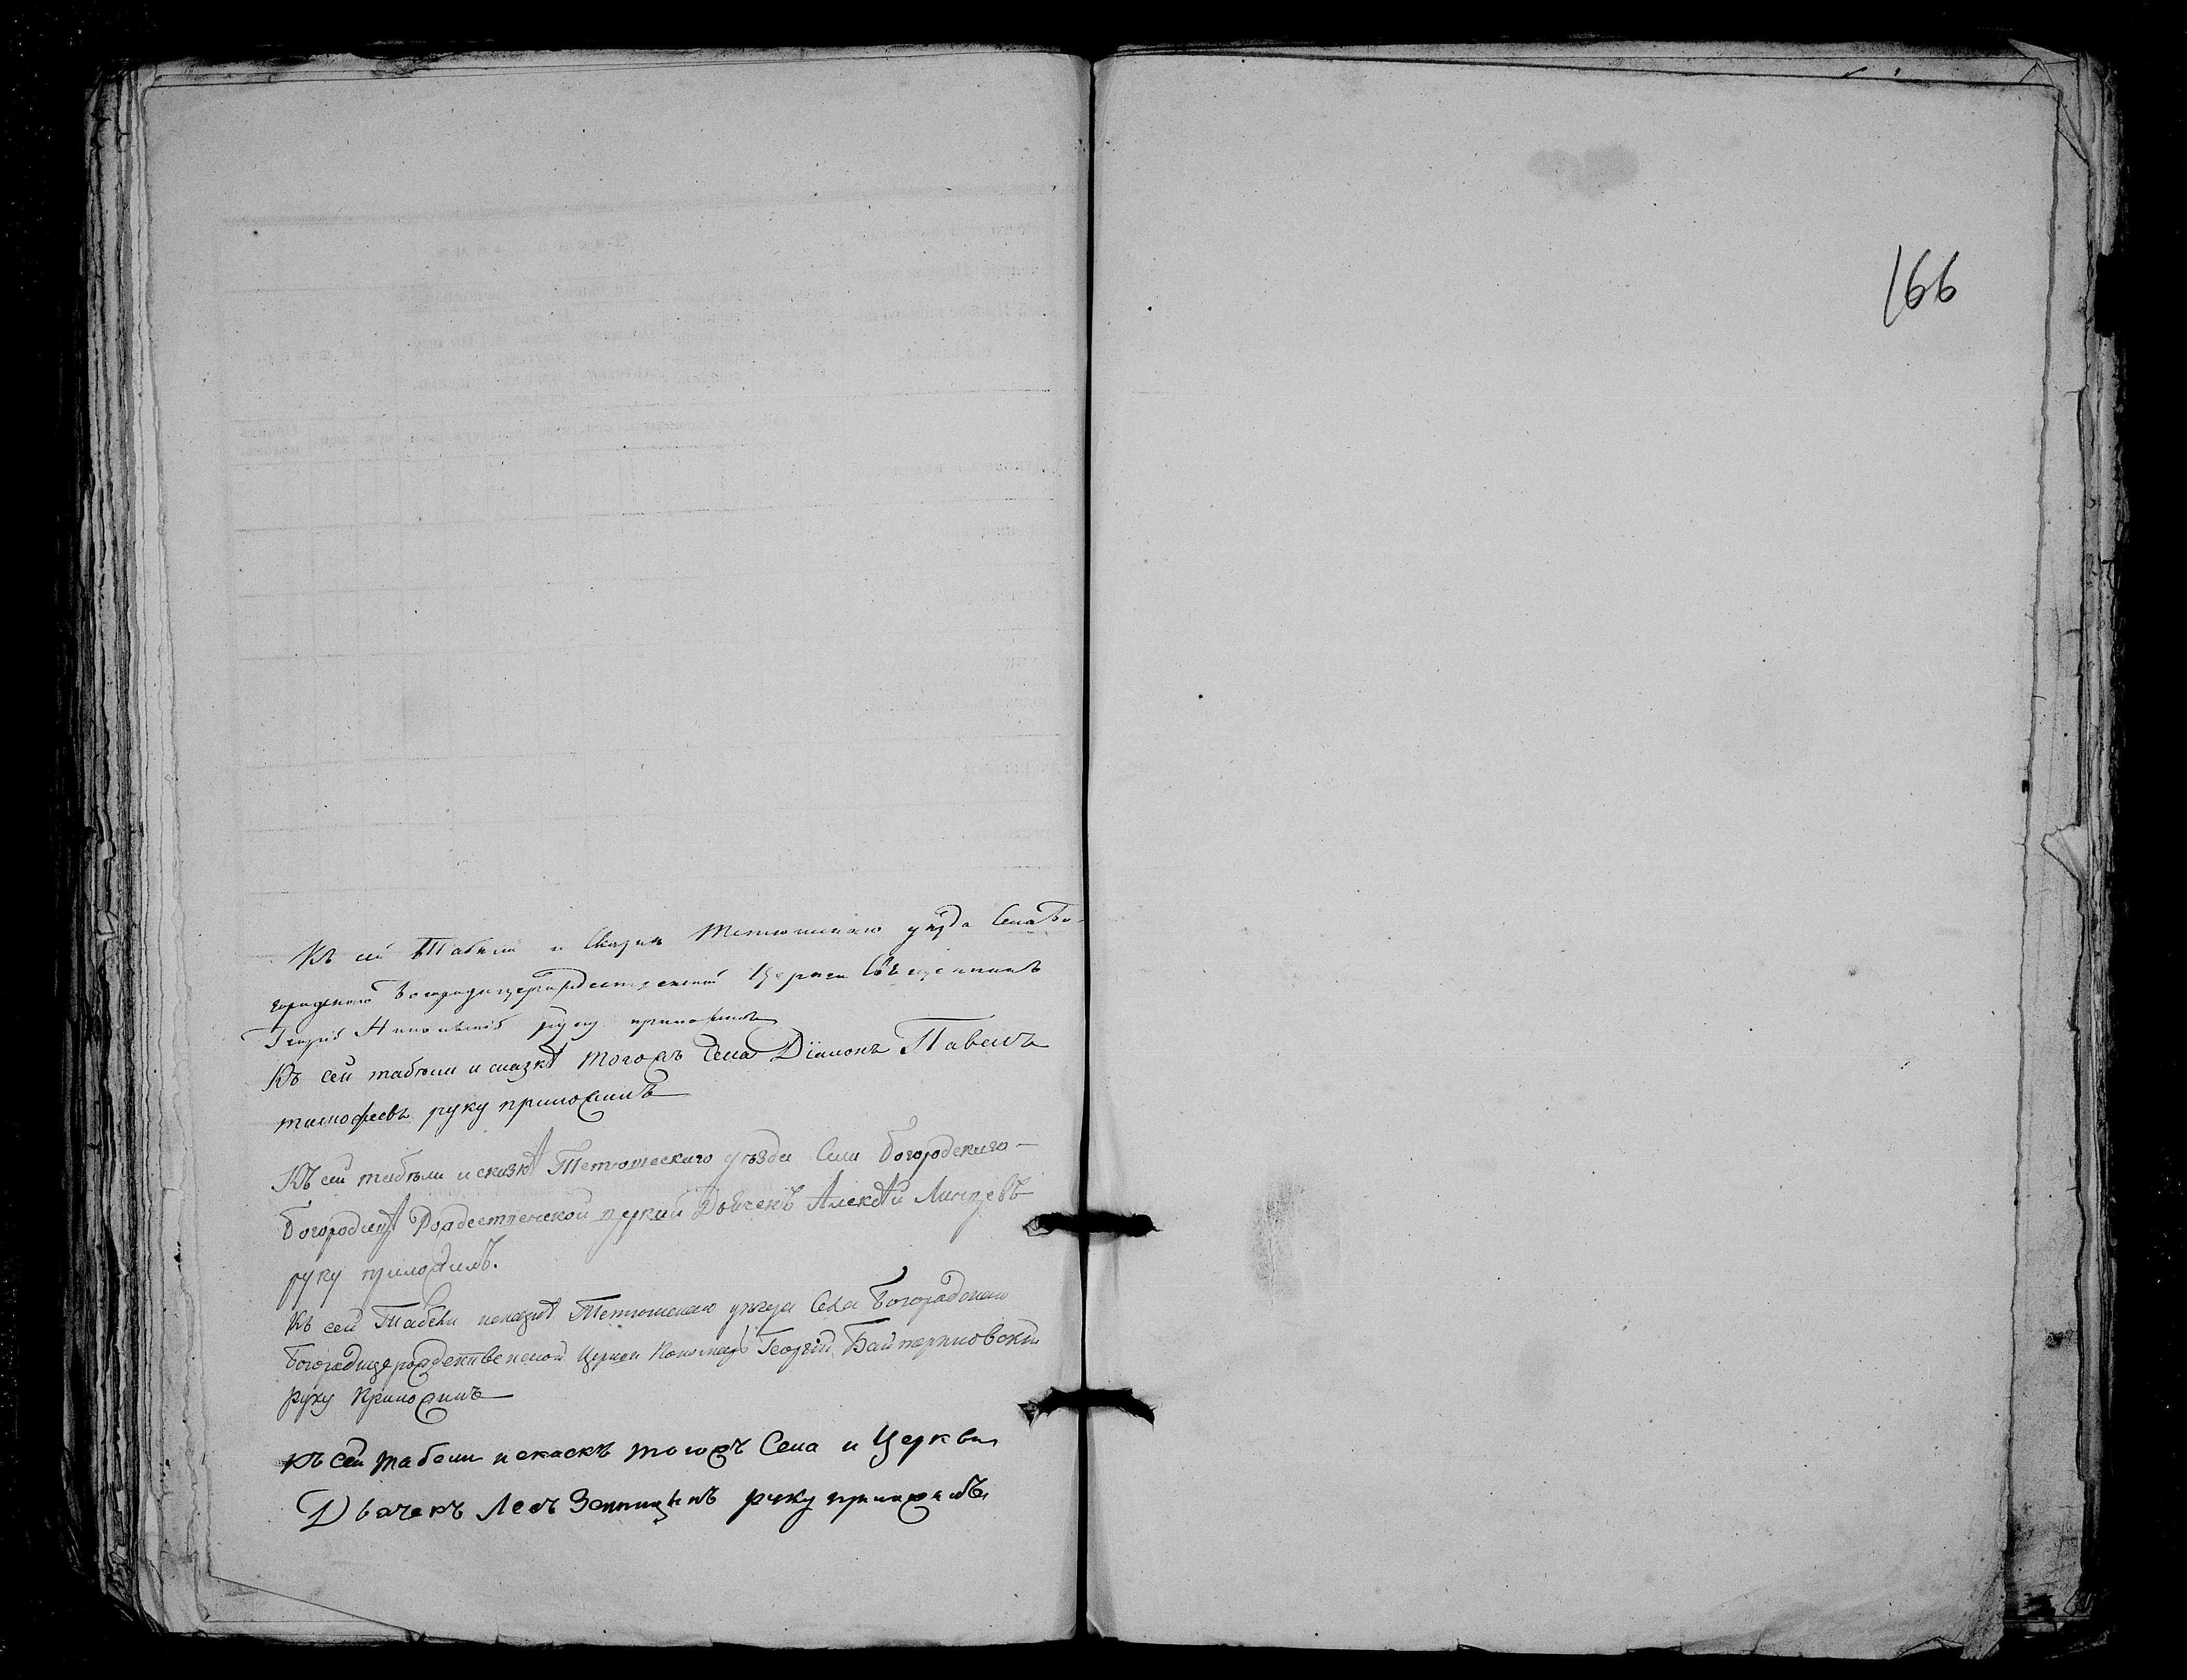 Къ сей Табели и Сказки Тетюшскаго уѣзда Села Бо-
городскаго Богородицерождественской Церкви Священникъ
руку приложилъ
Къ сей табели и сказкѣ тогожъ Села Діаконъ Павелъ
тимофеевъ руку приложилъ
Къ сей табели и сказкѣ Тетюшскаго уѣзда Села Богородскаго
Богородицѣ Рождественской церкви Дьячекъ Алексѣй
руку приложилъ.
Къ сей Табели исказкѣ Тетюшскаго уѣзда Села Богородскаго
Богородицерождественской Церкви Пономарь Георгій
руку Приложилъ
къ сей табели искаскѣ тогожъ Села и Церкви
Дьячекъ руку приложилъ
166